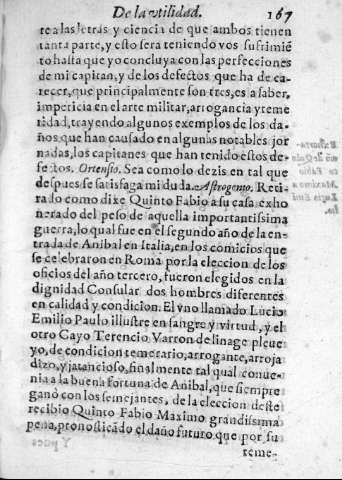 De la vtilidad. 167
te a las letras y ciencia de que ambos tienen
tanta parte, y esto sera teniendo vos sufrimiē
to hasta que yo concluya con las perfecciones
de mi capitan, y de los defectos que ha de ca-
recer, que principalmente son tres, es a saber,
impericia en el arte militar, arrogancia y teme
ridad, trayendo algunos exemplos de los da-
ños que han causado en algunas notables jor
nadas, los capitanes que han tenido estos de-
fectos. Ortensio. Sea como lo dezis en tal que
despues se satisfaga mi duda. Astrogono. Reti-
rado como dixe Quinto Fabio a su casa exho
nerado del peso de aquella importantissima
guerra, lo qual fue en el segundo año de la en-
trada de Anibal en Italia, en los comicios que
se celebraron en Roma por la eleccion de los
oficios del año tercero, fueron elegidos en la
dignidad Consular dos hombres diferentes
en calidad y condicion. El vno llamado Lucio
Emilio Paulo illustre en sangre y virtud, y el
otro Cayo Terencio Varron de linage pleue
yo, de condicion temerario, arrogante, arroja
dizo, y jatancioso, finalmente tal qual conue-
nia a la buena fortuna de Anibal, que siempre
ganò con los semejantes, de la eleccion deste
recibio Quinto Fabio Maximo grandissima
pena, pronosticādo el daño futuro que por su
teme-